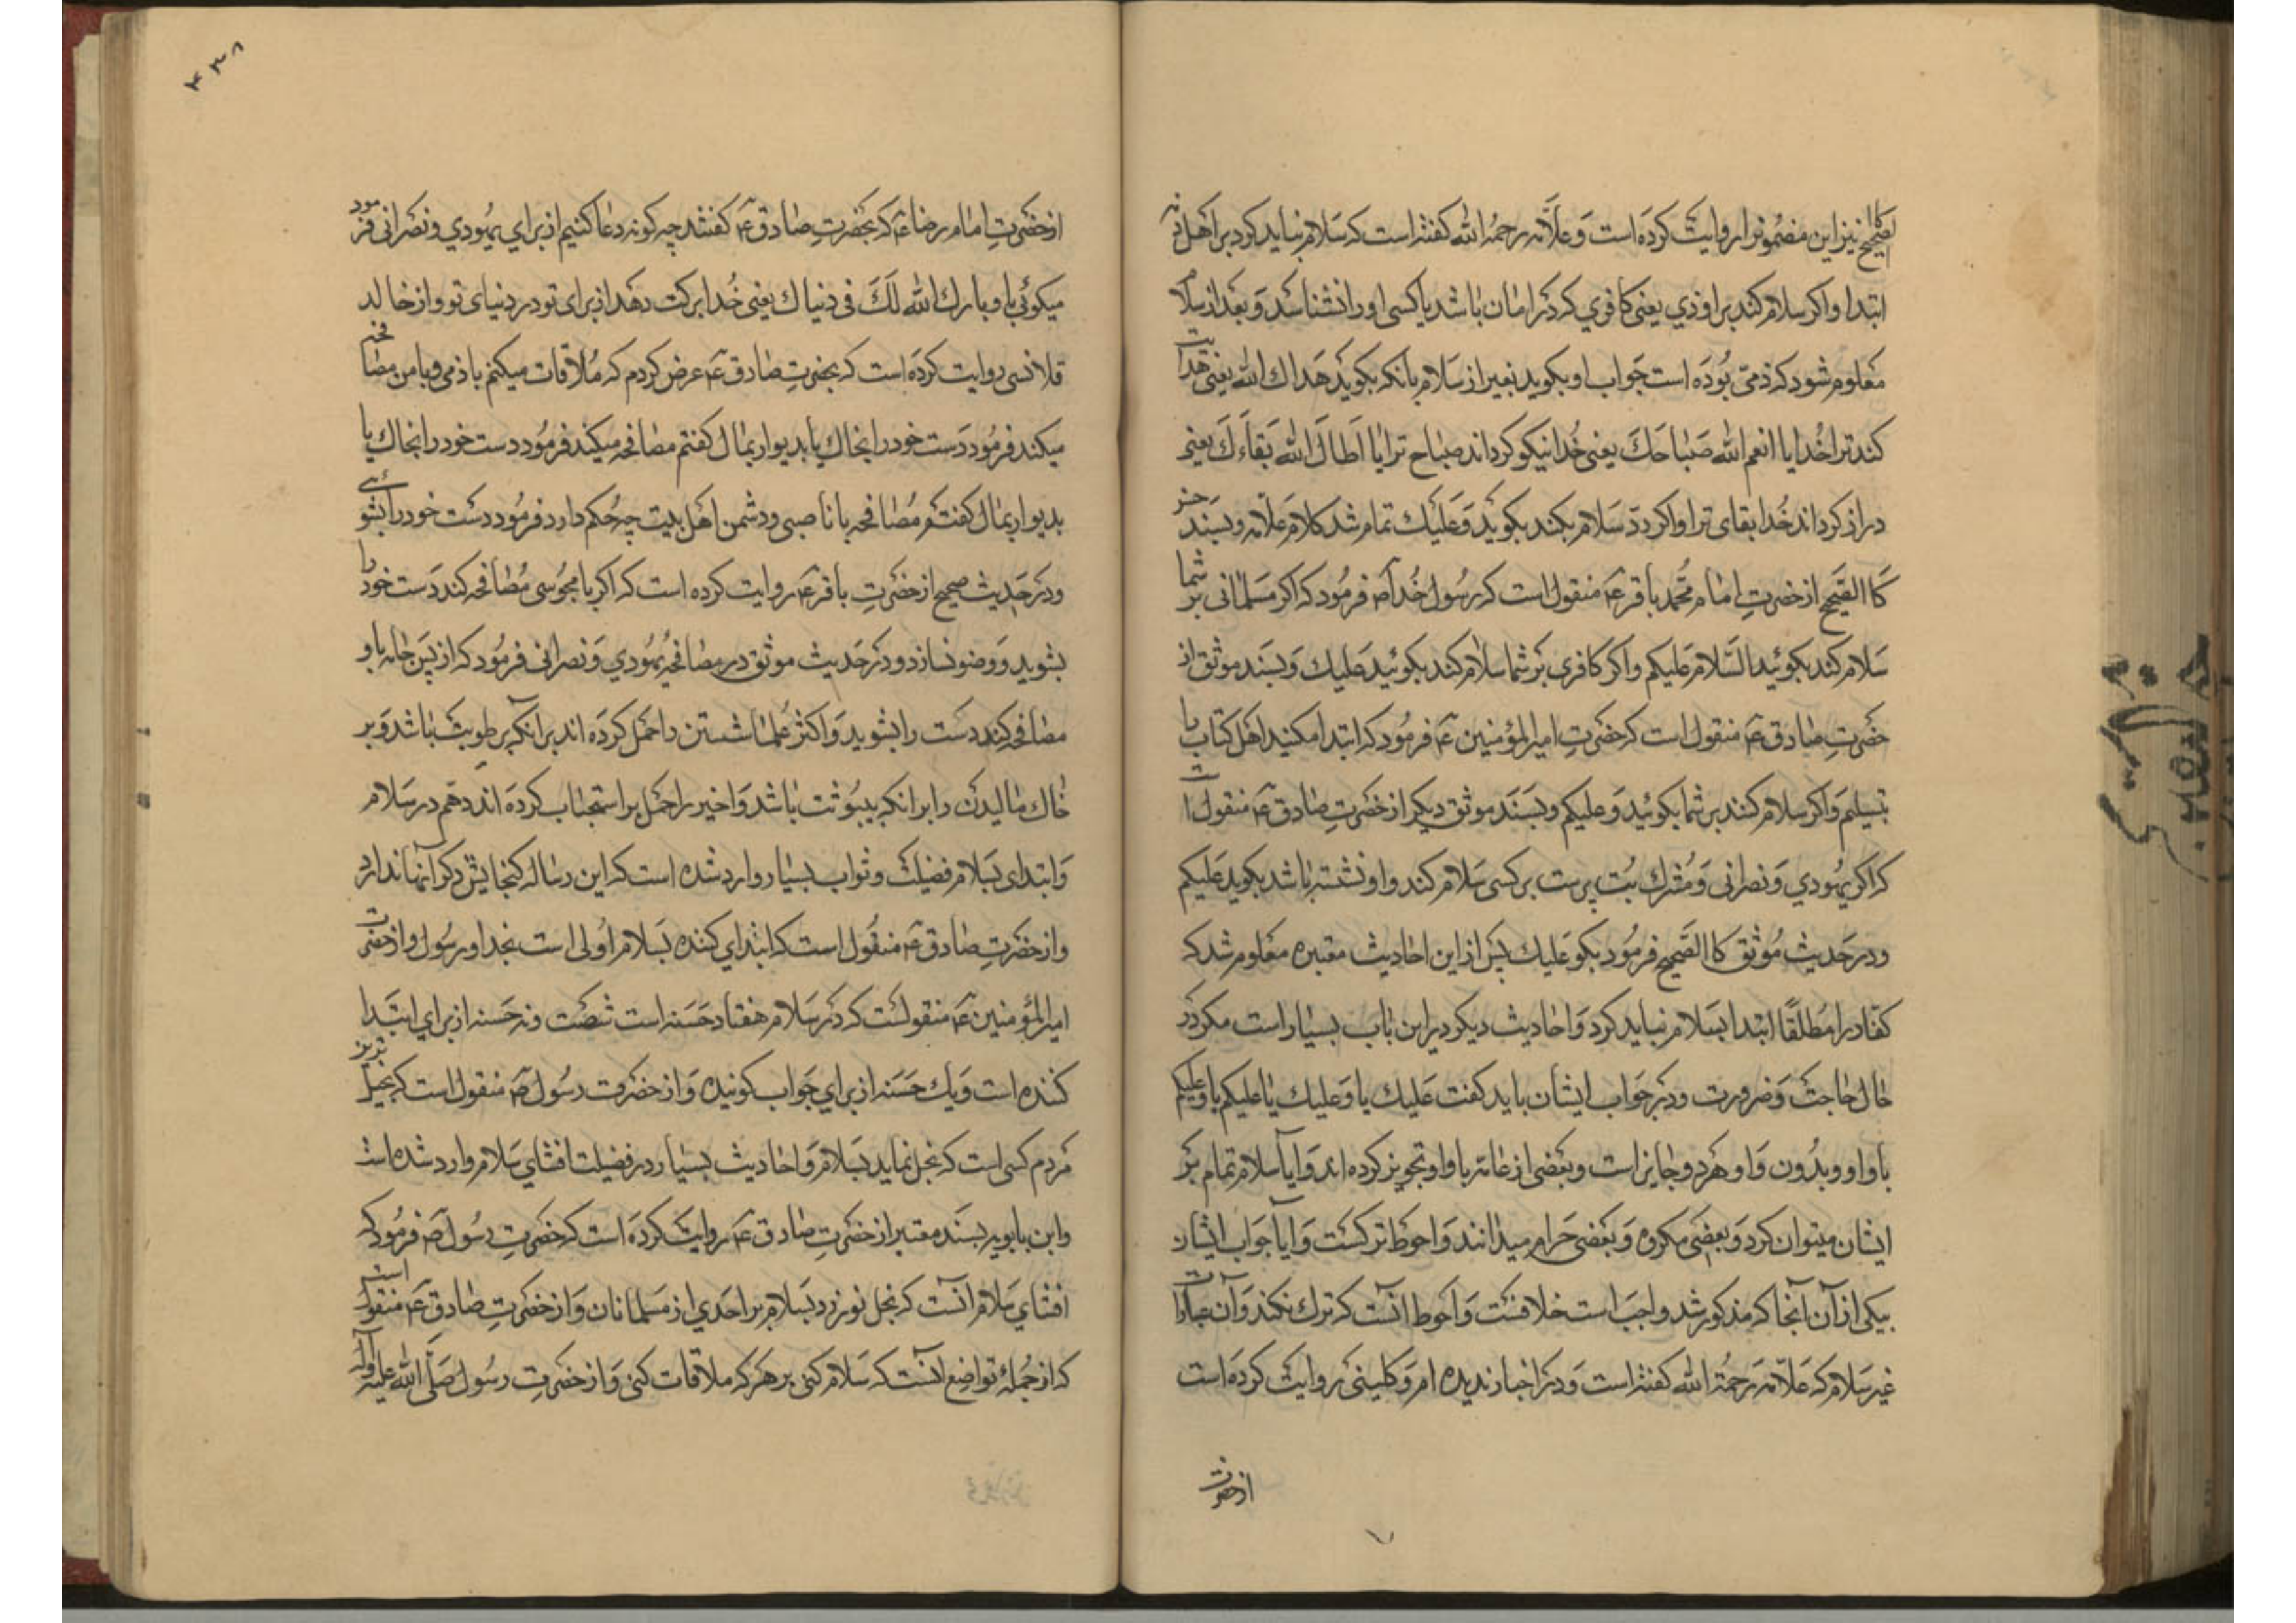 کالصحیح نیز این مضمونرا روایت کرده است و علّامه رحمه الله کفته است که سلام نباید کرد بر اهل ذمه
ابتدا و اکر سلام کند بر او ذمی یعنی کافری که در امان باشد یا کسی او را نشناسد و بعد از سلام
معلوم شود که ذمی بوده است جواب او بکوید بغیر از سلام بانکه بکوید هداك الله یعنی هدایت
کند ترا خدا یا انعم الله صباحك یعنی خدا نیکو کرداند صباح ترا یا اطال الله بقاءك یعنی
دراز کرداند خدا بقای ترا و اکر ردّ سلام بکند بکوید وعلیك تمام شد کلام علامه و بسند حسن
کالصحیح از حضرت امام محمد باقر ع منقول است که رسول خدا ص فرمود که اکر مسلمانی بر شما
سلام کند بکوئید السّلام علیکم و اکر کافری بر شما سلام کند بکوئید علیك و بسند موثق از
حضرت صادق ع منقول است که حضرت امیرالمؤمنین ع فرمود که ابتدا مکنید اهل کتاب را
بتسلیم و اکر سلام کنند بر شما بکوئید وعلیکم و بسند موثق دیکر از حضرت صادق ع منقول است
که اکر یهودی و نصرانی و مشرك بت پرست بر کسی سلام کند و او نشسته باشد بکوید علیکم
و در حدیث موثق کالصحیح فرمود بکو علیك پس از این احادیث معتبره معلوم شد که
کفار را مطلقًا ابتدا بسلام نباید کرد و احادیث دیکر در این باب بسیار است مکر در
حال حاجت و ضرورت و در جواب ایشان باید کفت علیك یا وعلیك یا علیکم یا وعلیکم
با واو و بدون واو هر دو جایز است و بعضی از عامه با واو تجویز کرده اند و ایا سلام تمام بر
ایشان میتوان کرد و بعضی مکروه و بعضی حرام میدانند و احوط ترکست و ایا جواب ایشان
بیکی از آن آنجا که مذکور شد واجب است خلافست و احوط آنست که ترك نکند و آن عبارات
غیر سلام که علّامه رحمة الله کفته است و در اخبار ندیده ام و کلینی روایت کرده است
از حضرت
۴۳۸
از حضرت امام رضا ع که بحضرت صادق ع کفتند چه کونه دعا کنیم از برای یهودی و نصرانی فرمود
میکوئی باو بارك الله لَكَ فی دنیاك یعنی خدا برکت دهد از برای تو در دنیای تو و از خالد
قلانسی روایت کرده است که بحضرت صادق ع عرض کردم که ملاقات میکنم با ذمی و با من مصافحه
میکند فرمود دست خود را بخاك یا بدیوار بمال کفتم مصافحه میکند فرمود دست خود را بخاك یا
بدیوار بمال کفتم مصافحه با ناصبی و دشمن اهل بیت چه حکم دارد فرمود دست خود را بشوئی
و در حدیث صحیح از حضرت باقر ع روایت کرده است که اکر با مجوسی مصافحه کند دست خود را
بشوید و وضو نسازد و در حدیث موثق در مصافحه یهودی و نصرانی فرمود که از پس جامه باو
مصافحه کند دست را بشوید و اکثر علما شستن را حمل کرده اند بر آنکه برطوبت باشد و بر
خاك مالیدن را بر انکه بیبوثت باشد و اخیر را حمل بر استحباب کرده اند دهم در سلام
و ابتدای بسلام فضیلت و ثواب بسیار وارد شده است که این رساله کنجایش ذکر آنها ندارد
و از حضرت صادق ع منقول است که ابتدای کننده بسلام اولی است بخدا و رسول و از حضرت
امیرالمؤمنین ع منقولست که در سلام هفتاد حسنه است شصت و نه حسنه از برای ابتدا
کننده است و یك حسنه از برای جواب کوینده و از حضرت رسول ص منقول است که بخیل ترین
مردم کسی است که بخل نماید بسلام و احادیث بسیار در فضیلت افشای سلام وارد شده است
و ابن بابویه بسند معتبر از حضرت صادق ع روایت کرده است که حضرت رسول ص فرمود که
افشای سلام آنست که بخل نورزد بسلام بر احدی از مسلمانان و از حضرت صادق ع منقول است
که از جمله تواضع آنست که سلام کنی بر هر که ملاقات کنی و از حضرت رسول صلّی الله علیه وآله